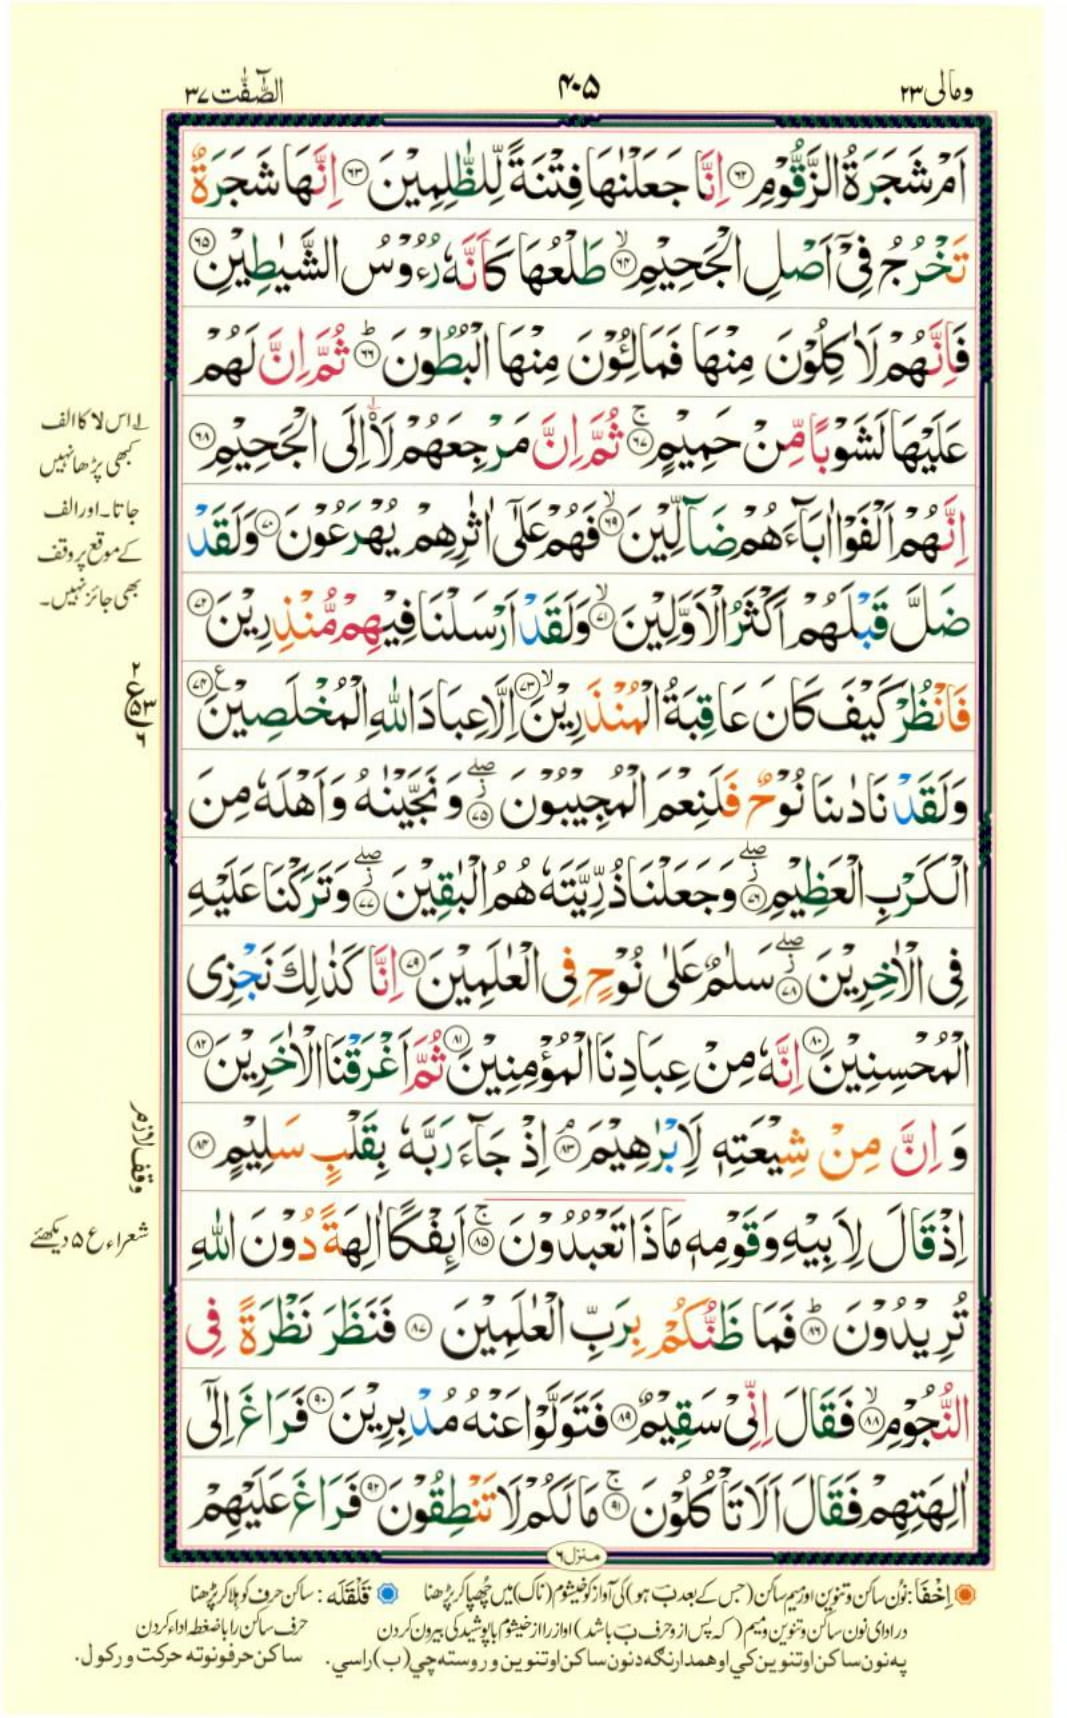 ومالی ۲۳
۴۰۵
الصّٰٓفّٰت ۳۷
اَمْ شَجَرَةُ الزَّقُّوْمِ ﴿۶۲﴾ اِنَّا جَعَلْنٰهَا فِتْنَةً لِّلظّٰلِمِيْنَ ﴿۶۳﴾ اِنَّهَا شَجَرَةٌ
تَخْرُجُ فِيْٓ اَصْلِ الْجَحِيْمِ ۙ﴿۶۴﴾ طَلْعُهَا كَاَنَّهٗ رُءُوْسُ الشَّيٰطِيْنِ ﴿۶۵﴾
فَاِنَّهُمْ لَاٰكِلُوْنَ مِنْهَا فَمَالِـُٔوْنَ مِنْهَا الْبُطُوْنَ ؕ﴿۶۶﴾ ثُمَّ اِنَّ لَهُمْ
عَلَيْهَا لَشَوْبًا مِّنْ حَمِيْمٍ ۚ﴿۶۷﴾ ثُمَّ اِنَّ مَرْجِعَهُمْ لَا۠اِلَى الْجَحِيْمِ ﴿۶۸﴾
اِنَّهُمْ اَلْفَوْا اٰبَآءَهُمْ ضَآلِّيْنَ ۙ﴿۶۹﴾ فَهُمْ عَلٰٓى اٰثٰرِهِمْ يُهْرَعُوْنَ ﴿۷۰﴾ وَلَقَدْ
ضَلَّ قَبْلَهُمْ اَكْثَرُ الْاَوَّلِيْنَ ۙ﴿۷۱﴾ وَلَقَدْ اَرْسَلْنَا فِيْهِمْ مُّنْذِرِيْنَ ﴿۷۲﴾
فَانْظُرْ كَيْفَ كَانَ عَاقِبَةُ الْمُنْذَرِيْنَ ۙ﴿۷۳﴾ اِلَّا عِبَادَ اللّٰهِ الْمُخْلَصِيْنَ ۧ﴿۷۴﴾
وَلَقَدْ نَادٰىنَا نُوْحٌ فَلَنِعْمَ الْمُجِيْبُوْنَ ۖ﴿۷۵﴾ وَنَجَّيْنٰهُ وَاَهْلَهٗ مِنَ
الْكَرْبِ الْعَظِيْمِ ۖ﴿۷۶﴾ وَجَعَلْنَا ذُرِّيَّتَهٗ هُمُ الْبٰقِيْنَ ۖ﴿۷۷﴾ وَتَرَكْنَا عَلَيْهِ
فِى الْاٰخِرِيْنَ ۖ﴿۷۸﴾ سَلٰمٌ عَلٰى نُوْحٍ فِى الْعٰلَمِيْنَ ﴿۷۹﴾ اِنَّا كَذٰلِكَ نَجْزِى
الْمُحْسِنِيْنَ ﴿۸۰﴾ اِنَّهٗ مِنْ عِبَادِنَا الْمُؤْمِنِيْنَ ﴿۸۱﴾ ثُمَّ اَغْرَقْنَا الْاٰخَرِيْنَ ﴿۸۲﴾
وَ اِنَّ مِنْ شِيْعَتِهٖ لَاِبْرٰهِيْمَ ﴿۸۳﴾ اِذْ جَآءَ رَبَّهٗ بِقَلْبٍ سَلِيْمٍ ﴿۸۴﴾
اِذْ قَالَ لِاَبِيْهِ وَقَوْمِهٖ مَاذَا تَعْبُدُوْنَ ۚ﴿۸۵﴾ اَئِفْكًا اٰلِهَةً دُوْنَ اللّٰهِ
تُرِيْدُوْنَ ؕ﴿۸۶﴾ فَمَا ظَنُّكُمْ بِرَبِّ الْعٰلَمِيْنَ ﴿۸۷﴾ فَنَظَرَ نَظْرَةً فِى
النُّجُوْمِ ۙ﴿۸۸﴾ فَقَالَ اِنِّىْ سَقِيْمٌ ﴿۸۹﴾ فَتَوَلَّوْا عَنْهُ مُدْبِرِيْنَ ﴿۹۰﴾ فَرَاغَ اِلٰٓى
اٰلِهَتِهِمْ فَقَالَ اَلَا تَاْكُلُوْنَ ۚ﴿۹۱﴾ مَا لَكُمْ لَا تَنْطِقُوْنَ ﴿۹۲﴾ فَرَاغَ عَلَيْهِمْ
منزل ۶
۱ اس لا کا الف
کبھی پڑھا نہیں
جاتا۔ اور الف
کے موقع پر وقف
بھی جائز نہیں۔
۲
ع
۵۳
۶
وقف لازم
شعراء ع ۵ دیکھئے
اِخْفَا: نُون ساکن و تنوین اور میم ساکن (جس کے بعد بَ ہو) کی آواز کو خیشوم (ناک) میں چُھپا کر پڑھنا
قَلْقَلَه: ساکن حرف کو ہلا کر پڑھنا
در ادای نون ساکن و تنوین و میم (که پس از و حرف بَ باشد) آواز را از خیشوم با پوشیدگی بیرون کردن
حرف ساکن را با ضغطه اداء کردن
په نون ساکن او تنوین کي او همدارنگه د نون ساکن او تنوین وروسته چي (ب) راسي.
ساکن حرفونو ته حرکت ورکول.